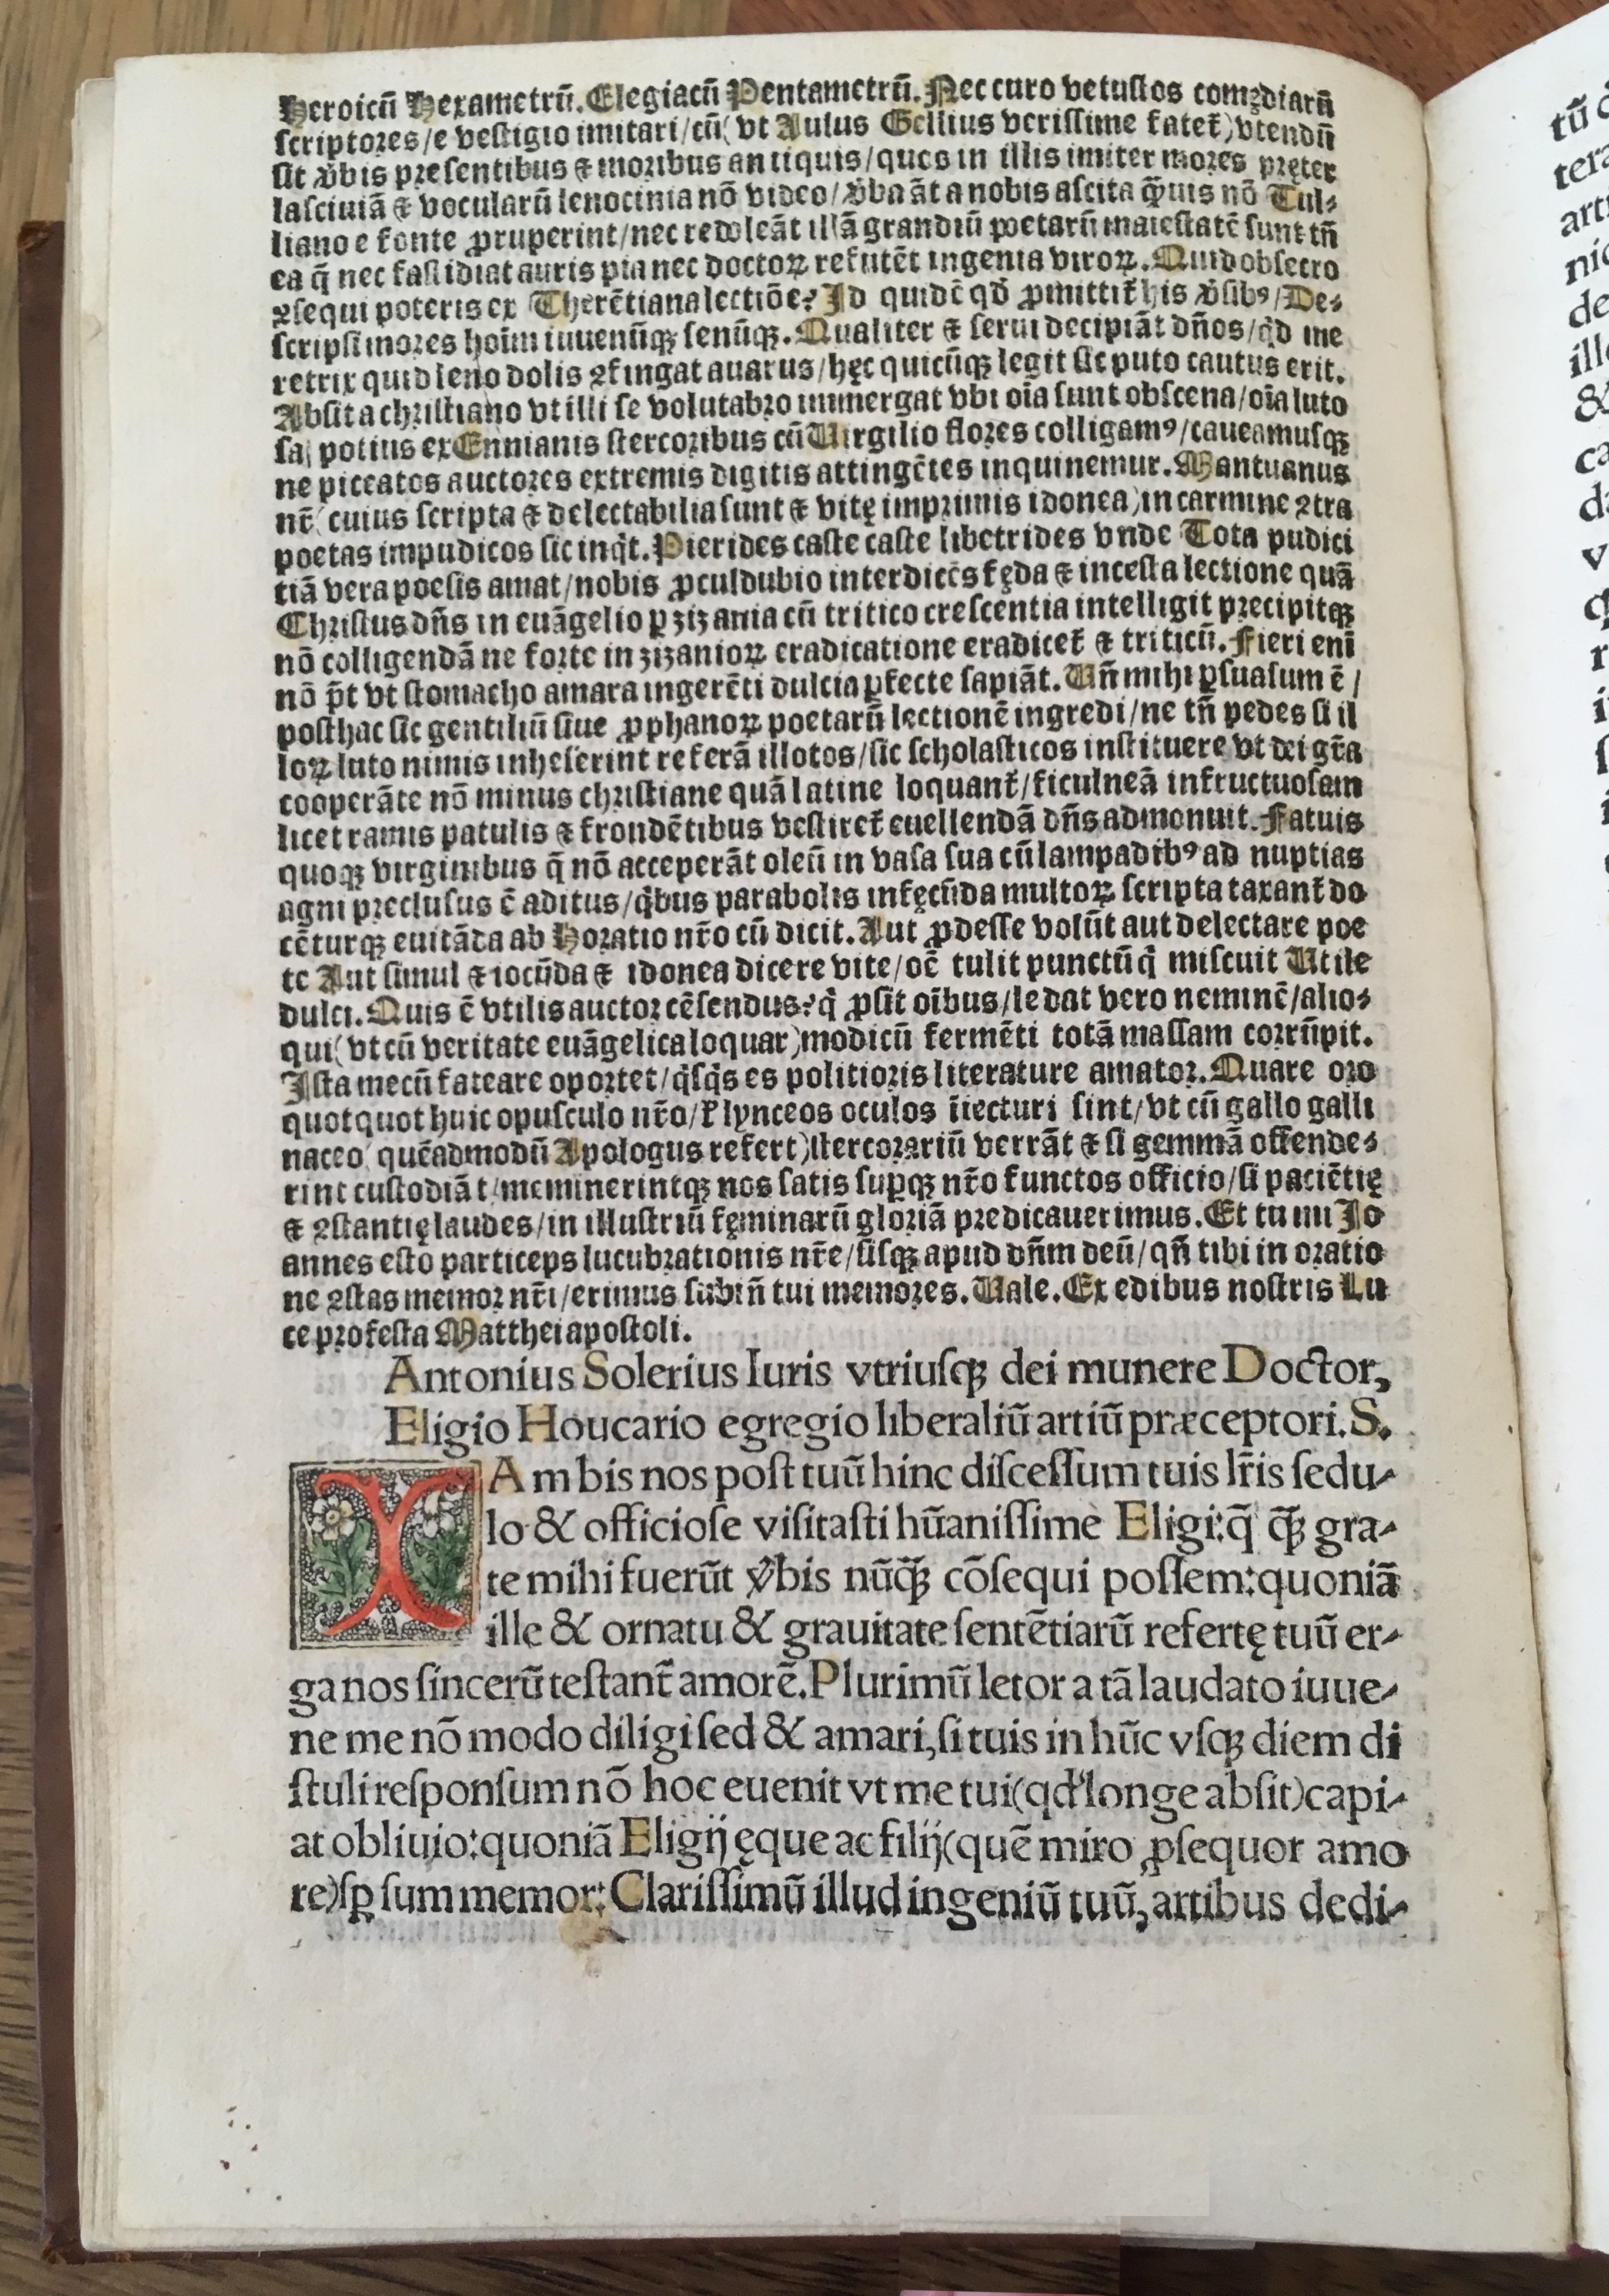 Heroicū Hexametrū. Elegiacū Pentametrū. Nec curo vetustos comędiarū
scriptores/e vestigio imitari/cū( vt Aulus Gellius verissime fatet᷑) vtendū
sit v̾bis presentibus ⁊ moribus antiquis/quos in illis imiter mores pręter
lasciuiā ⁊ vocularū lenocinia nō video/v̾ba āt a nobis ascita q̄ꝫuis nō Tul⸗
liano e fonte ꝓruperint/nec redoleāt illā grandiū poetarū maiestatē sunt tn̄
ea q̄ nec fastidiat auris pia nec doctoꝝ refutēt ingenia viroꝝ. Quid obsecro
ꝯsequi poteris ex Therētiana lectiōe? Id quidē qd̓ ꝓmittit᷑ his v̾sibꝰ/De⸗
scripsi mores hoīm iuuenūqꝫ senūqꝫ. Qualiter ⁊ serui decipiāt dn̄os/qͥd me
retrix quid leno dolis ꝯfingat auarus/hęc quicūqꝫ legit sic puto cautus erit.
Absit a christiano vt illi se volutabro immergat vbi oīa sunt obscena/oīa luto
sa/ potius ex Ennianis stercoribus cū Virgilio flores colligamꝰ/caueamusqꝫ
ne piceatos auctores extremis digitis attingētes inquinemur. Mantuanus
nr̄(cuius scripta ⁊ delectabilia sunt ⁊ vitę imprimis idonea) in carmine ꝯtra
poetas impudicos sic inqͥt. Pierides caste caste libetrides vnde Tota pudici
tiā vera poesis amat/nobis ꝓculdubio interdicēs fęda ⁊ incesta lectione quā
Christus dn̄s in euāgelio ꝑ zizania cū tritico crescentia intelligit precipitqꝫ
nō colligendā ne forte in zizanioꝝ eradicatione eradicet᷑ ⁊ triticū. Fieri enī
nō p̄t vt stomacho amara ingerēti dulcia ꝑfecte sapiāt. Vn̄ mihi ꝑsuasum ē/
posthac sic gentiliū siue ꝓphanoꝝ poetarū lectionē ingredi/ne tn̄ pedes si il
loꝝ luto nimis inheserint referā illotos/sic scholasticos instituere vt dei gr̄a
cooperāte nō minus christiane quā latine loquant᷑/ficulneā infructuosam
licet ramis patulis ⁊ frondētibus vestiret᷑ euellendā dn̄s admonuit. Fatuis
quoqꝫ virginibus q̄ nō acceperāt oleū in vasa sua cū lampadibꝰ ad nuptias
agni preclusus ē aditus/qͥbus parabolis infęcūda multoꝝ scripta taxant᷑ do
cēturqꝫ euitāda ab Horatio nr̄o cū dicit. Aut ꝓdesse volūt aut delectare poe
te Aut simul ⁊ iocūda ⁊ idonea dicere vite/oē tulit punctū qͥ miscuit Utile
dulci. Quis ē vtilis auctor cēsendus? qͥ ꝓsit oībus/ledat vero neminē/alio⸗
qui( vt cū veritate euāgelica loquar)modicū fermēti totā massam corrūpit.
Ista mecū fateare oportet/qͥsqͥs es politioris literature amator. Quare oro
quotquot huic opusculo nr̄o/ lynceos oculos īiecturi sint/vt cū gallo galli
naceo( quēadmodū Apologus refert)stercorariū verrāt ⁊ si gemmā offende⸗
rint custodiāt/meminerintqꝫ nos satis suꝑqꝫ nr̄o functos officio/si paciētię
⁊ ꝯstantię laudes/in illustriū fęminarū gloriā predicauerimus. Et tu mi Jo
annes esto particeps lucubrationis nr̄e/sisqꝫ apud dn̄m deū/qn̄ tibi in oratio
ne ꝯstas memor nr̄i/erimus subin̄ tui memores. Vale. Ex edibus nostris Lu
ce profesta Matthei apostoli.
Antonius Solerius Iuris vtriusqꝫ dei munere Doctor,
Eligio Houcario egregio liberaliū artiū præceptori. S.
XAm bis nos post tuū hinc discessum tuis lr̄is sedu-
lo & officiose visitasti hūanissime Eligi: q̄ q̄ꝫ gra-
te mihi fuerūt v̾bis nūq̄ꝫ cōsequi possem: quoniā
ille & ornatu & grauitate sentētiarū refertę tuū er-
ga nos sincerū testant᷑ amorē. Plurimū letor a tā laudato iuue-
ne me nō modo diligi sed & amari, si tuis in hūc vsqꝫ diem di
stuli responsum nō hoc euenit vt me tui(qd̓ longe absit)capi-
at obliuio: quoniā Eligij ęque ac filij(quē miro ꝓsequor amo
re)sꝑ sum memor: Clarissimū illud ingeniū tuū, artibus dedi-